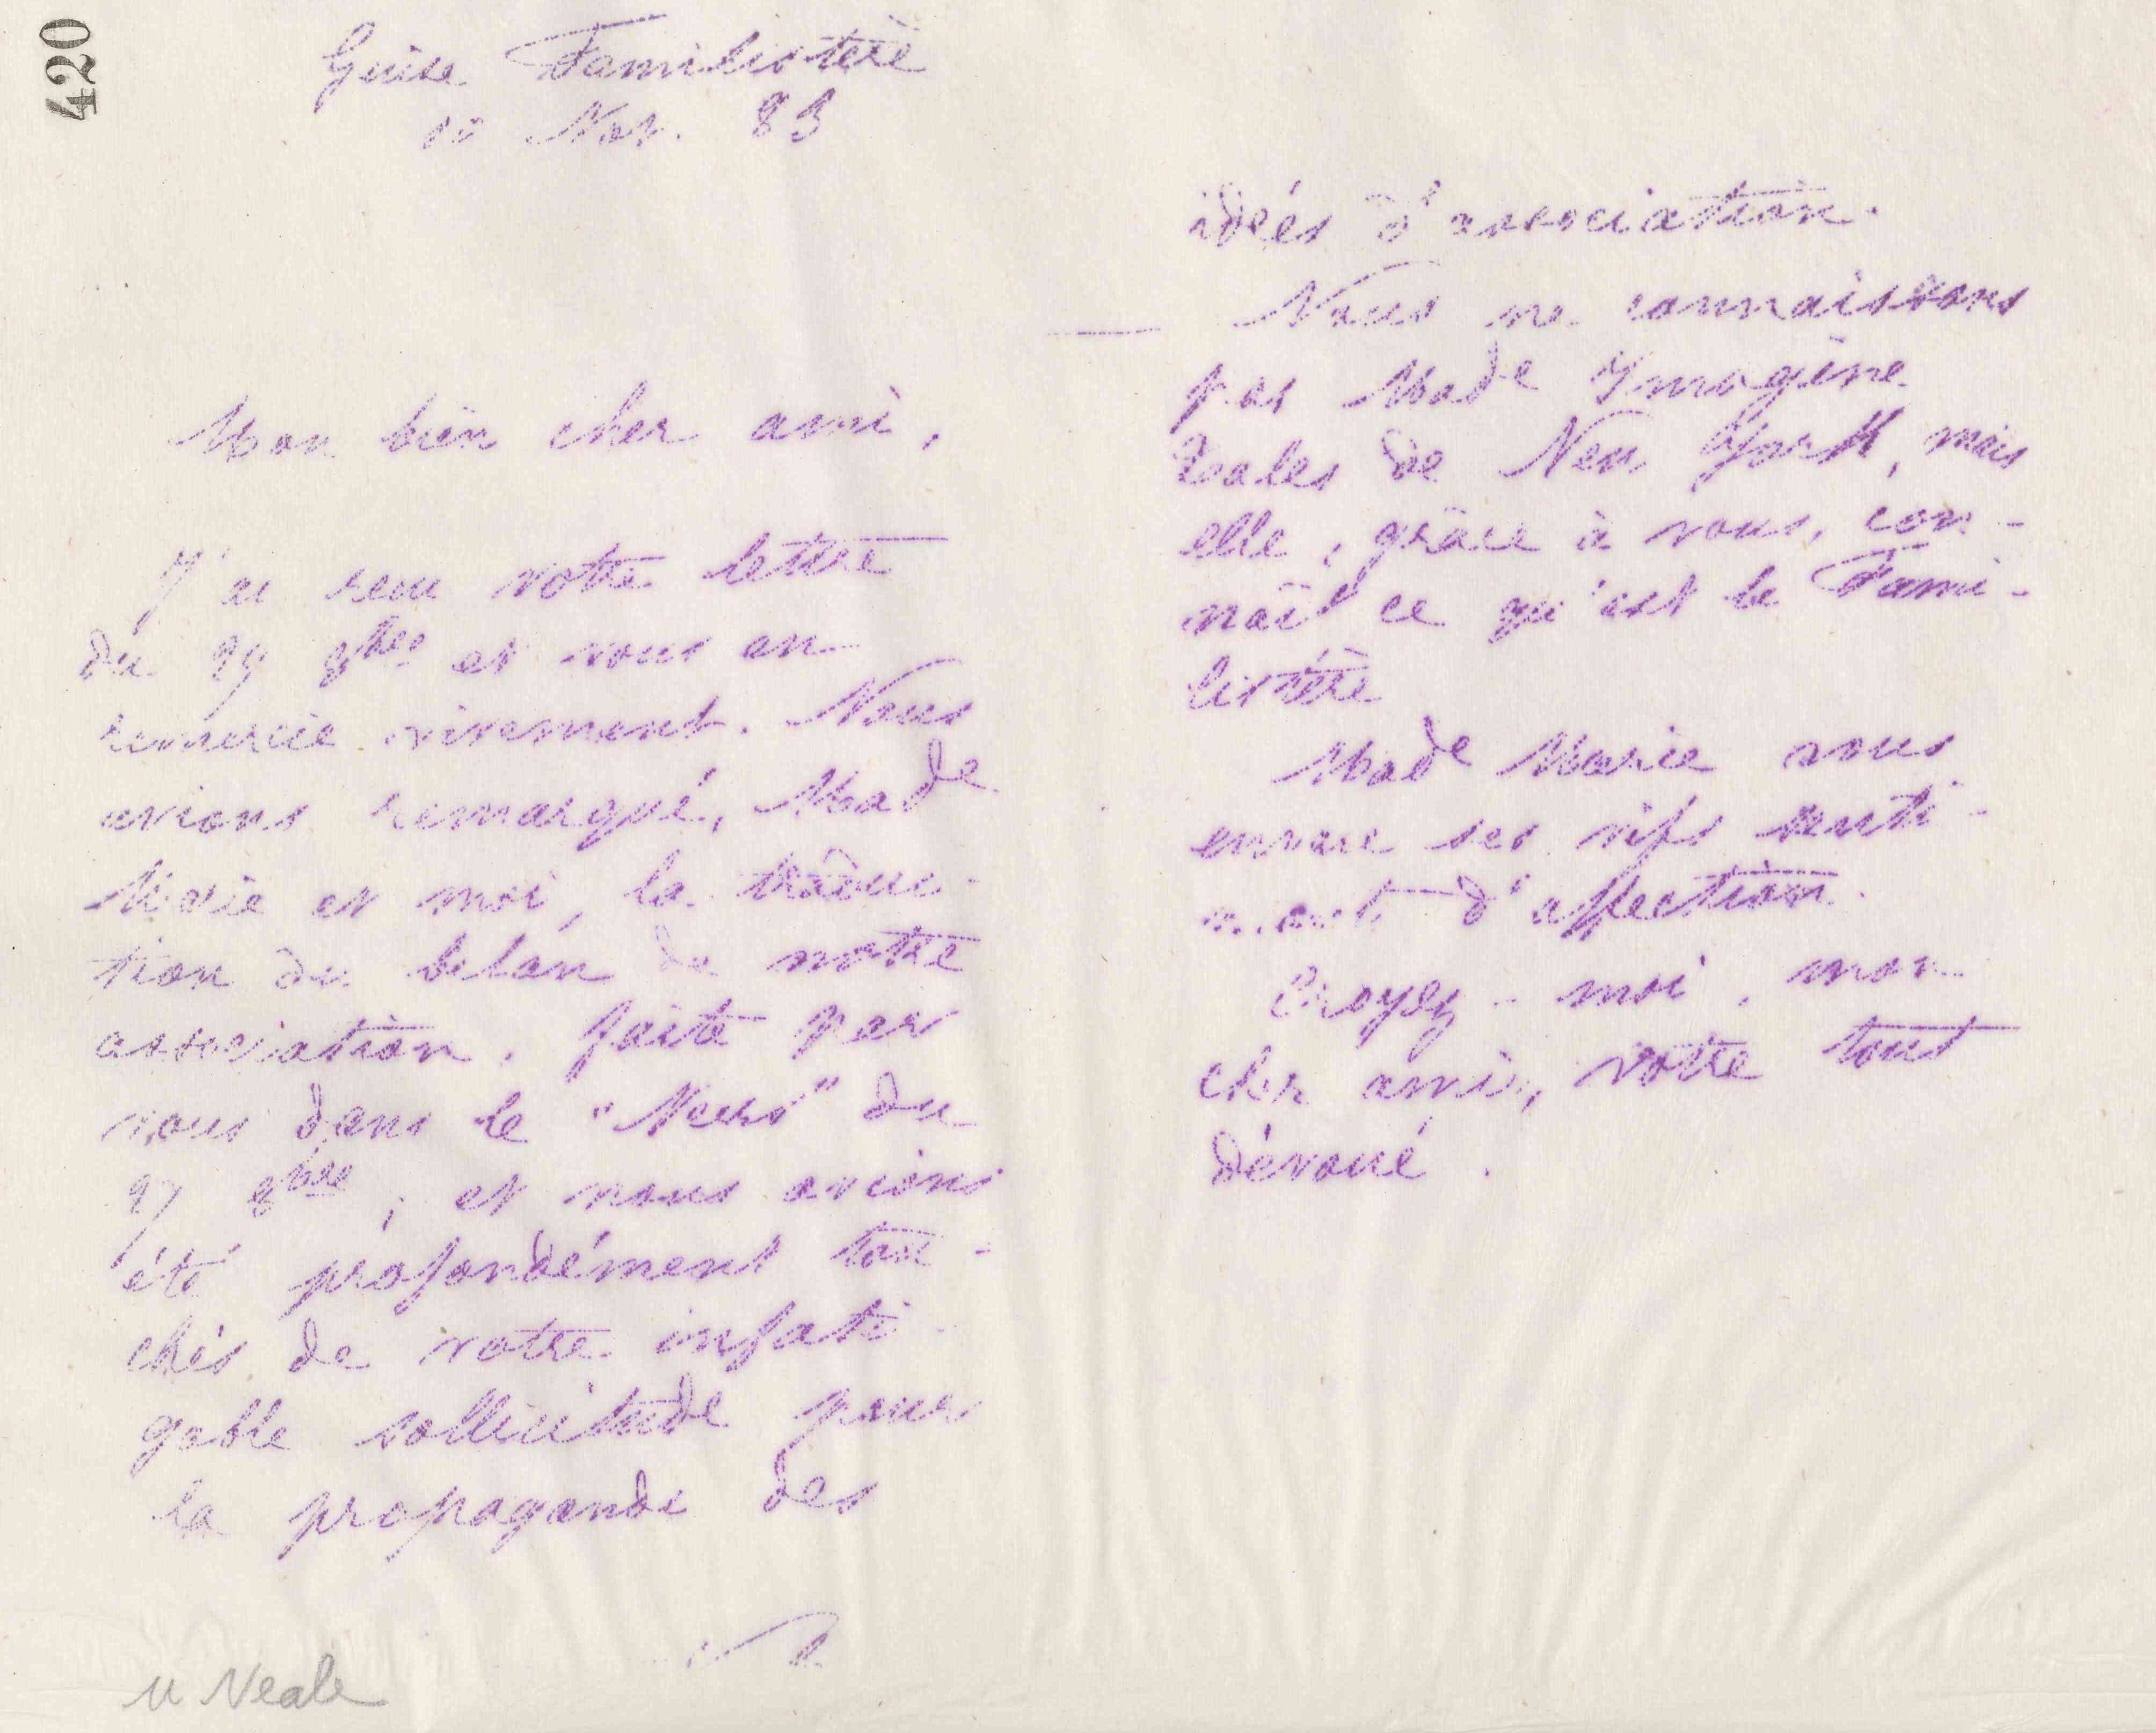 420
Guise Familistère
10 Nov. 83
Mon bien cher ami,
J'ai recu votre lettre
du 29 8bre et vous en
remercie vivement. Nous
avions remarqué, Made
Marie et moi, la traduc-
tion du bilan de notre
association, faite par
vous dans le "News" du
27 8bre ; et nous avions
été profondément tou-
chés de votre infati-
gable sollicitude pour
la propagande des
M Neale
idées d'association.
Nous ne connaissons
pas Made Imogène
Eales de New York, mais
elle, grâce à vous, con-
naît ce qu'est le Fami-
listère
Made Marie vous
envoie ses vifs senti-
ments d'affection.
Croyez-moi, mon
cher ami, votre tout
dévoué.